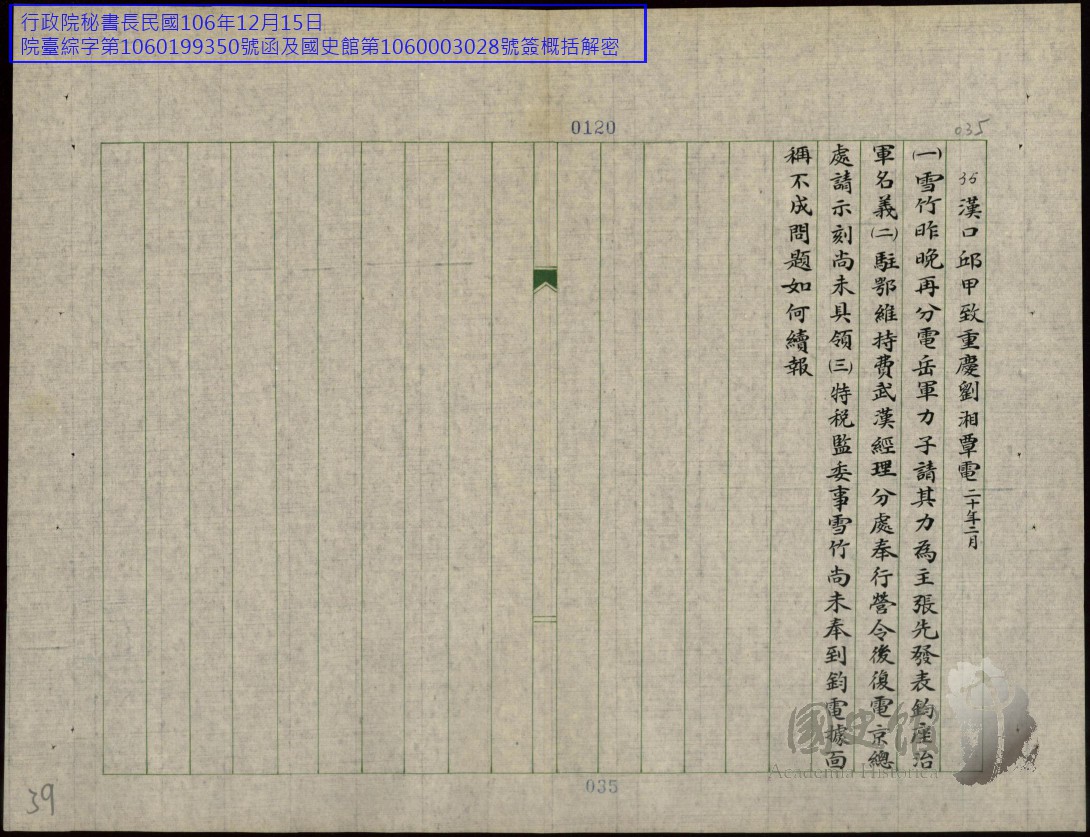 行政院秘書長民國106年12月15日
院臺綜字第1060199350號函及國史館第1060003028號簽概括解密
0120
035
35漢口邱甲致重慶劉湘覃電二十年二月
(一)雪竹昨晚再分電岳軍力子請其力為主張先發表鈞座治
軍名義(二)駐鄂維持費武漢經理分處奉行營令後復電京總
處請示刻尚未具領(三)特稅監委事雪竹尚未奉到鈞電據面
稱不成問題如何續報
國史館
Academia Historica
035
39